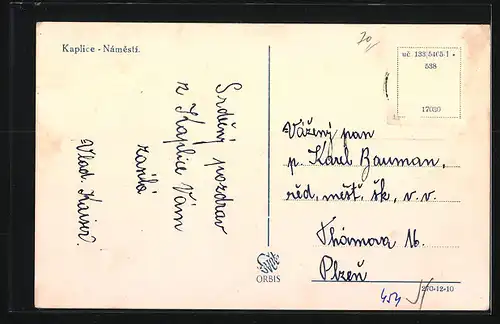 Kaplice - Náměstí.
20
uč 133/5465-1 •
538
17020
Srdečný pozdrav
z Kaplice Vám
zasílá
Vlad. Kaiser.
Vážený pan
p. Karel Bauman,
řéd. měšť. šk. v. v.
Thámova 16.
Plzeň
ORBIS
270-12-10
454